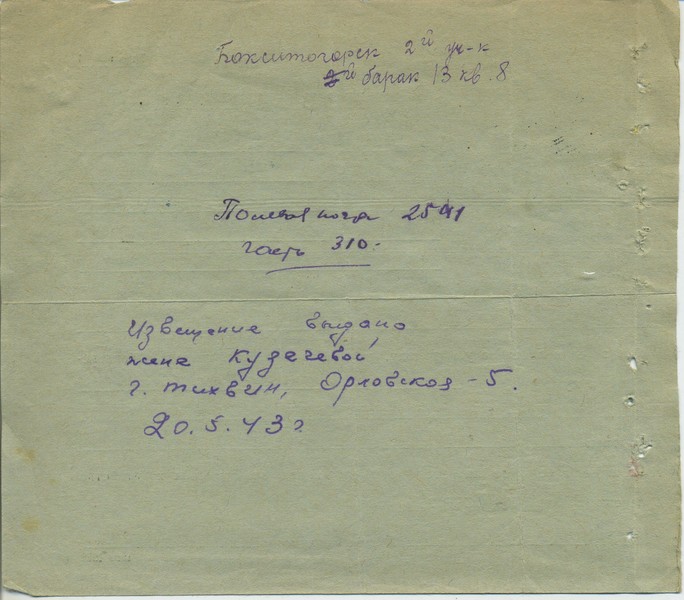 Бокситогорск 2й уч-к
2й барак 13 кв. 8
Полевая почта 2541
часть 310.
Извещение выдано
жене Кузачевой,
г. Тихвин, Орловская - 5.
20.5.43 г